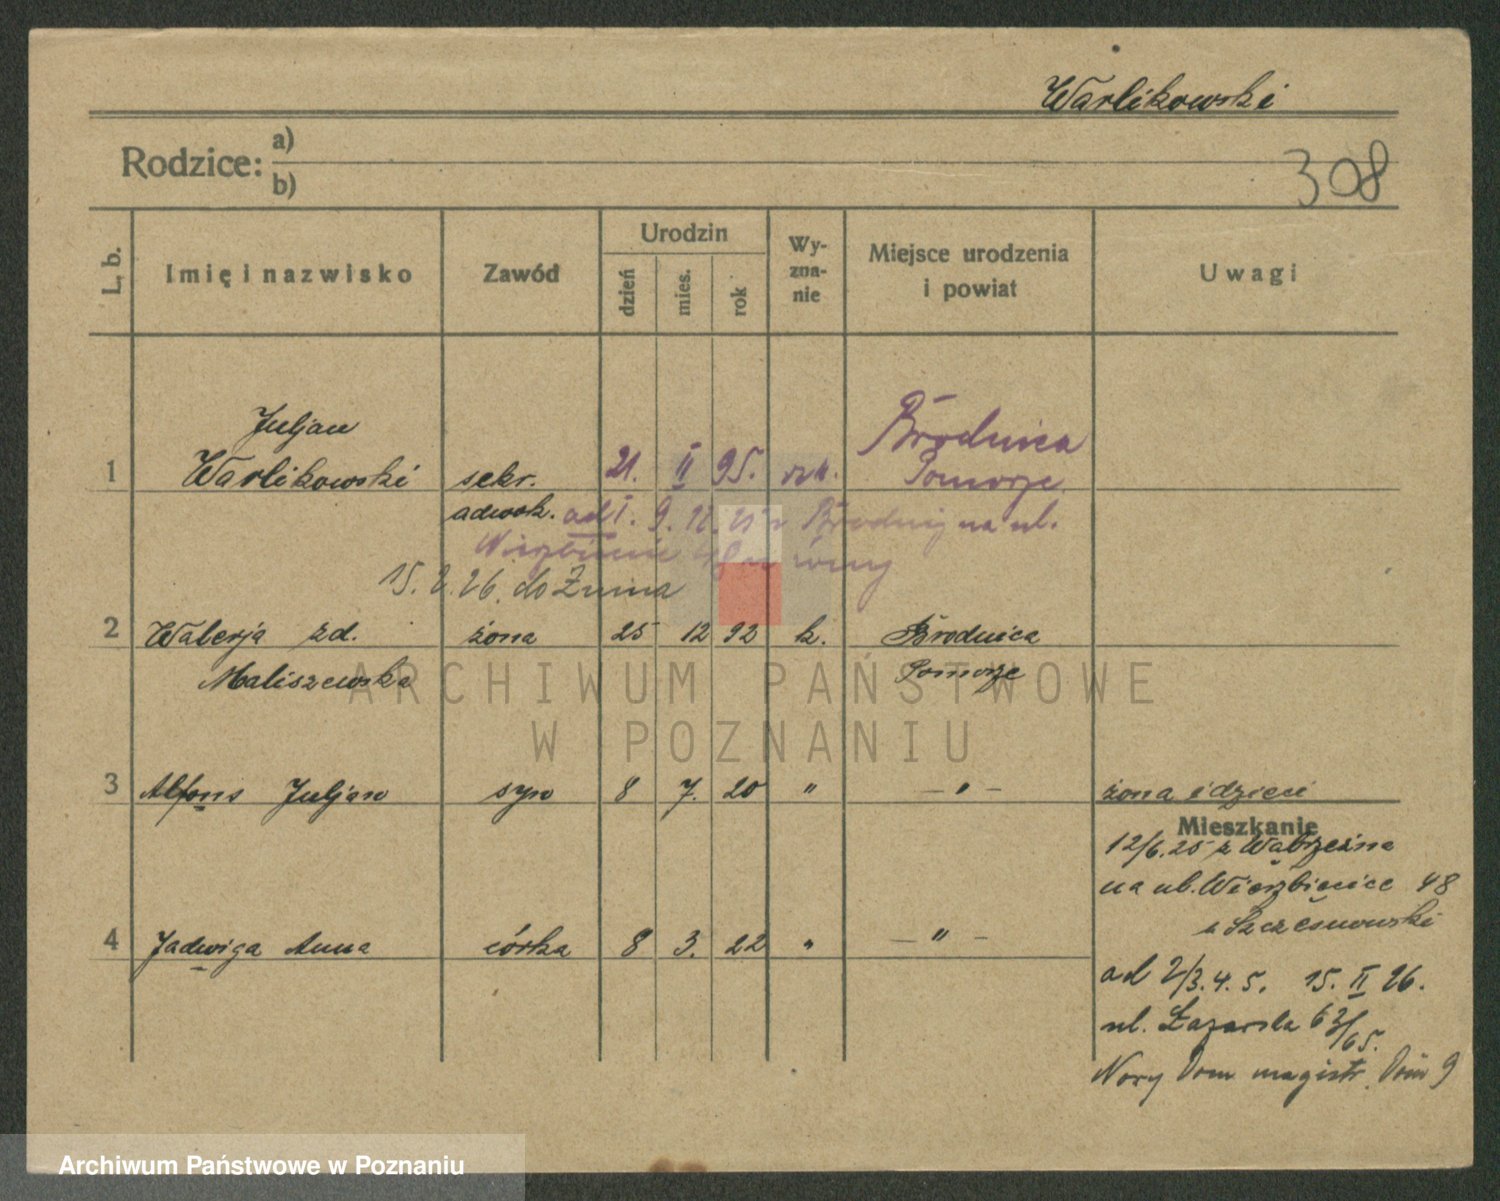 Warlikowski
Rodzice: a)
b)
308
L. b.
Imię i nazwisko
Zawód
Urodzin
dzień
mies.
rok
Wy-
zna-
nie
Miejsce urodzenia
i powiat
Uwagi
Juljan
1 Warlikowski sekr. 21. II 95. Brodnica
Pomorze
adwok. ad 1. 9. 12. 25 z Brodnicy na ul.
Wierzbięcice 48
15. 2. 26. do Żnina
2 Walerja zd. żona 25 12 92 k. Brodnica
Maliszewska Pomorze
3 Alfons Juljan syn 8 7. 20 " – " –
żona i dzieci
Mieszkanie
12/6.25 z Wąbrzeźna
na ul. Wierzbięcice 48
u Szczesnowski
4 Jadwiga Anna córka 8 3. 22 " – " –
ad 2/3. 4. 5. 15. II 26.
ul. Łazarska 63/65.
Nowy Dom magistr. Dom 9
ARCHIWUM PAŃSTWOWE
W POZNANIU
Archiwum Państwowe w Poznaniu